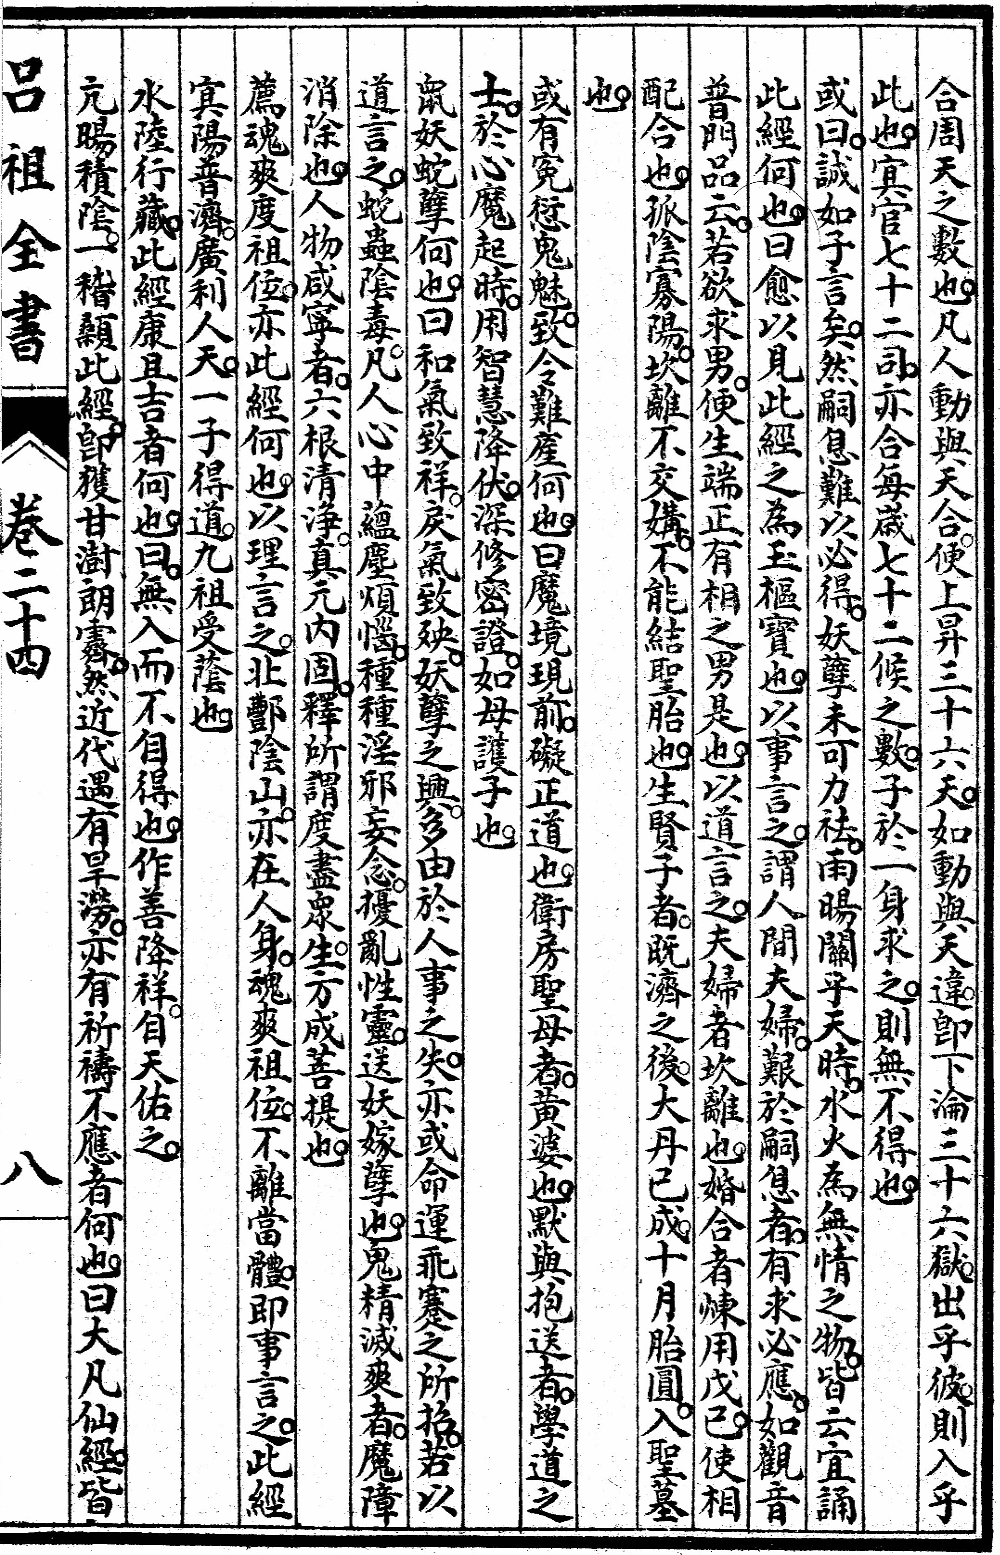 合周天之數也凡人動與天合便上昇三十六天如動與天違卽下淪三十六獄出乎彼則入乎
此也㝠官七十二司亦合每歲七十二候之數子於一身求之則無不得也
或曰誠如子言矣然嗣息難以必得妖孽未可力祛雨暘關乎天時水火為無情之物皆云宜誦
此經何也曰愈以見此經之為玉樞寶也以事言之謂人間夫婦艱於嗣息者有求必應如觀音
普門品云若欲求男便生端正有相之男是也以道言之夫婦者坎離也婚合者煉用戊己使相
配合也孤陰寡陽坎離不交媾不能結聖胎也生賢子者既濟之後大丹已成十月胎圓入聖基
也
或有寃愆鬼魅致令難産何也曰魔境現前礙正道也衛房聖母者黃婆也默與抱送者學道之
士於心魔起時用智慧降伏深修密證如母護子也
鼠妖蛇孽何也曰和氣致祥戾氣致殃妖孽之興多由於人事之失亦或命運乖蹇之所招若以
道言之蛇蟲陰毒凡人心中蘊塵煩惱種種淫邪妄念擾亂性靈送妖嫁孽也鬼精滅爽者魔障
消除也人物咸寧者六根清淨真元內固釋所謂度盡衆生方成菩提也
薦魂爽度祖位亦此經何也以理言之北酆陰山亦在人身魂爽祖位不離當體即事言之此經
㝠陽普濟廣利人天一子得道九祖受蔭也
水陸行藏此經康且吉者何也曰無入而不自得也作善降祥自天佑之
亢暘積陰一稽顙此經卽獲甘澍朗霽然近代遇有旱澇亦有祈禱不應者何也曰大凡仙經皆
呂祖全書
卷二十四
八